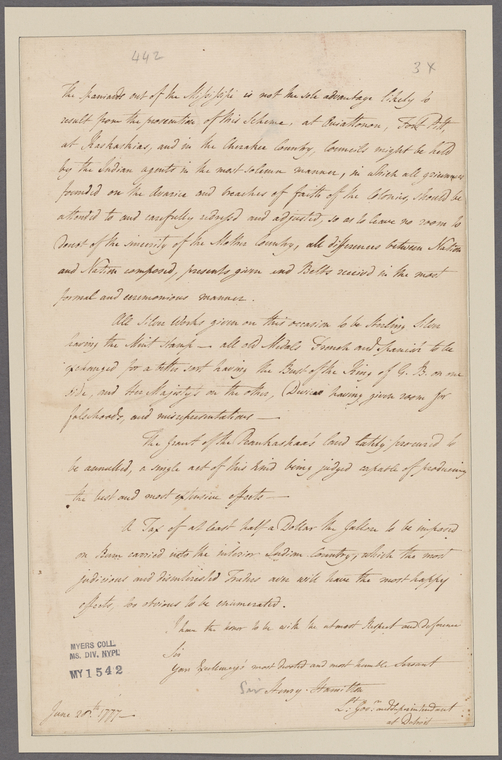 442
3x
the Spaniards out of the Mississipi is not the sole advantage likely to
result from the prosecution of this Scheme, at Ouiattonon, Fort Pitt,
at Kaskaskias, and in the Cherakee Country, Councils might be held
by the Indian agents in the most solemn manner, in which all grievances
founded on the avarice and breaches of faith of the Colonies, should be
attended to and carefully redress'd and adjusted, so as to leave no room to
doubt of the sincerity of the Mother Country, all differences between Nation
and Nation composed, presents given and Belts received in the most
formal and ceremonious manner.
All Silver Works, given on this occasion to be Sterling Silver
having the Mint Stamp — all old Medals French and Spanish to be
exchanged for a better sort having the Bust of the King of G. B. on one
side, and Her Majesty's on the other, (Devices having given room for
falsehoods, and misrepresentations —
The grant of the Peankashaa's land lately procured to
be annulled, a single act of this kind being judged capable of producing
the best and most extensive effects —
A Tax of at least half a Dollar the Gallon to be imposed
on Rum carried into the interior Indian Country, which the most
judicious and disinterested Traders own will have the most happy
effects, too obvious to be enumerated.
I have the honor to be with the utmost Respect and deference
Sir
Your Excellency's most devoted and most humble Servant
Henry Hamilton
Lt. Govr. and Superintendant
at Detroit
June 20th. 1777 —
MYERS COLL.
MS. DIV. NYPL
MY 1542